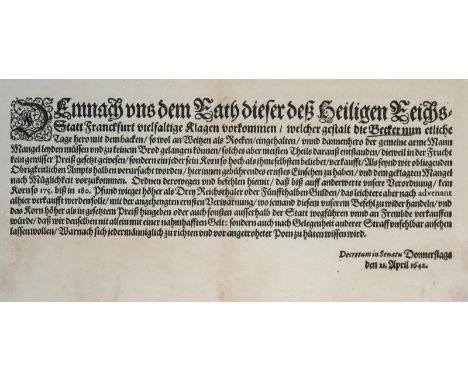 DEmnach vns dem Rath dieser deß Heiligen Reichs-
Statt Franckfurt vielfaltige Klagen vorkommen / welcher gestalt die Becker nun etliche
Tage hero mit dem backen / so wol an Weitzen als Rocken / eingehalten / vnnd dannenhero der gemeine arme Mann
Mangel leyden müssen vnd zu keinem Brod gelangen können / solches aber meisten Theils darauß entstanden / dieweil in der Frucht
kein gewisser Preiß gesetzt gewesen / sondern ein jeder sein Korn so hoch als ihme selbsten beliebet / verkaufft. Als seynd wir obliegenden
Obrigkeitlichen Ampts halben verursacht worden / hierinnen gebührendes ernstes Einsehen zu haben / vnd dem geklagten Mangel
nach Möglichkeit vorzukommen. Ordnen derowegen vnd befehlen hiemit / daß biß auff anderwerte vnsere Verordnung / kein
Korn so 175. biß in 180. Pfund wieget höher als Drey Reichsthaler oder Fünffthalben Gulden / das leichtere aber nach advenant
alhier verkaufft werden solle / mit der angehengten ernsten Verwarnung / wo jemand diesem vnserem Befehl zuwider handeln / vnd
das Korn höher als in gesetztem Preiß hingeben oder auch sonsten ausserhalb der Statt wegführen vnnd an Frembde verkauffen
würde / daß wir denselben nit allein mit einer nahmhafften Gelt: sondern auch nach Gelegenheit anderer Straff vnfehlbar ansehen
lassen wollen / Warnach sich jedermänniglich zu richten vnd vor angetroheter Poen zu hüten wissen wird.
Decretum in Senatu Donnerstags
den 21. April 1642.